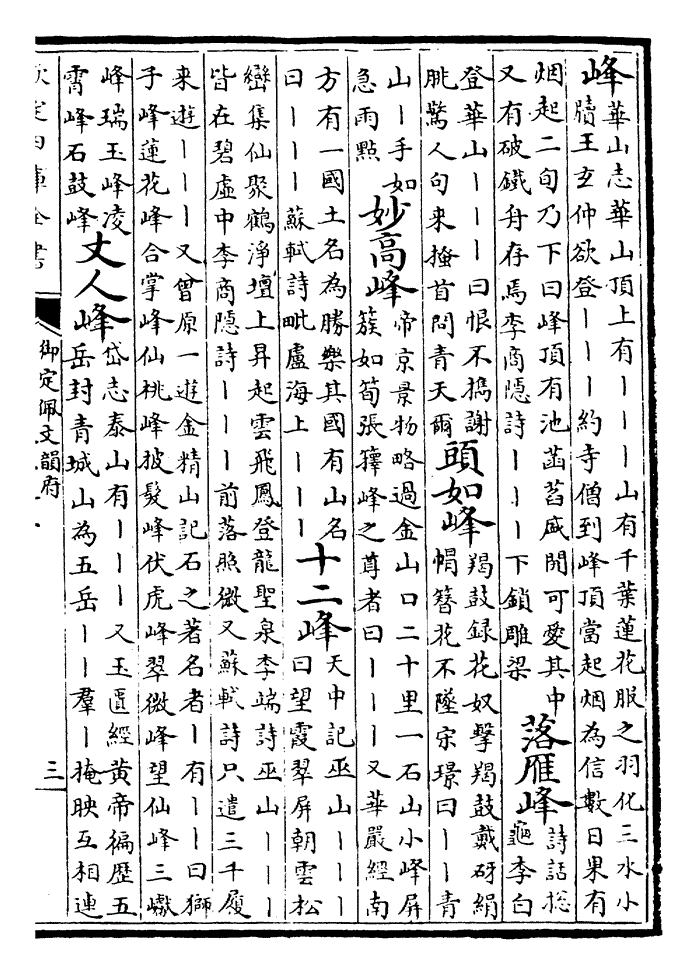 峰
華山志華山頂上有丨丨丨山有千葉蓮花服之羽化三水小
牘王玄仲欲登丨丨丨約寺僧到峰頂當起烟為信數日果有
烟起二旬乃下曰峰頂有池菡萏盛開可愛其中
又有破鐵舟存焉李商隱詩丨丨丨下鎖雕梁
落雁峰
詩話揔
龜李白
登華山丨丨丨曰恨不擕謝
朓驚人句來搔首問青天爾
頭如峰
羯鼓録花奴擊羯鼓戴砑絹
帽簪花不墜宋璟曰丨丨青
山丨手如
急雨點
妙高峰
帝京景物略過金山口二十里一石山小峰屏
簇如筍張籜峰之尊者曰丨丨丨又華嚴經南
方有一國土名為勝樂其國有山名
曰丨丨丨蘇軾詩毗盧海上丨丨丨
十二峰
天中記巫山丨丨丨
曰望霞翠屏朝雲松
巒集仙聚鶴淨壇上昇起雲飛鳳登龍聖泉李端詩巫山丨丨丨
皆在碧虛中李商隱詩丨丨丨前落照微又蘇軾詩只遣三千履
來遊丨丨丨又曾原一遊金精山記石之著名者丨有丨丨曰獅
子峰蓮花峰合掌峰仙桃峰披髮峰伏虎峰翠微峰望仙峰三巘
峰瑞玉峰凌
霄峰石鼓峰
丈人峰
岱志泰山有丨丨丨又玉匱經黃帝徧歷五
岳封青城山為五岳丨丨羣丨掩映互相連
欽定四庫全書
御定佩文韻府
三